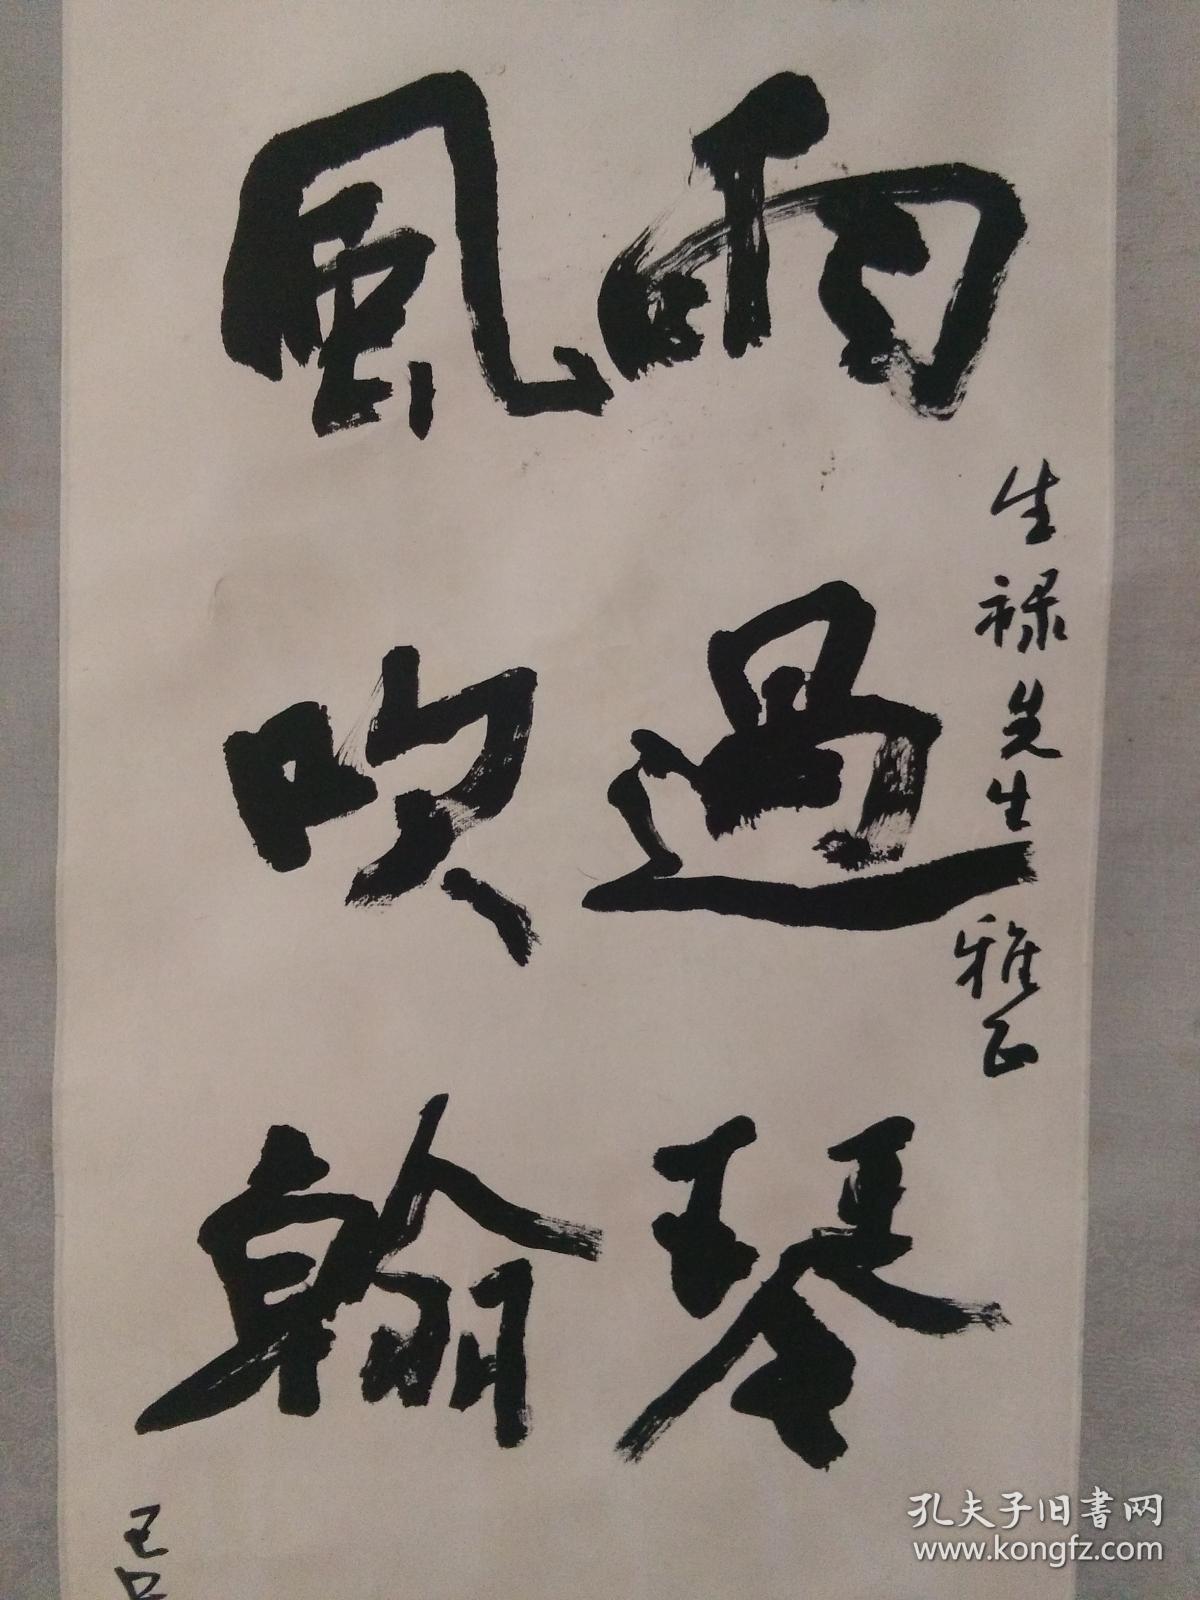 雨過琴
風吹翰
生禄先生雅正
孔夫子旧书网
www.kongfz.com